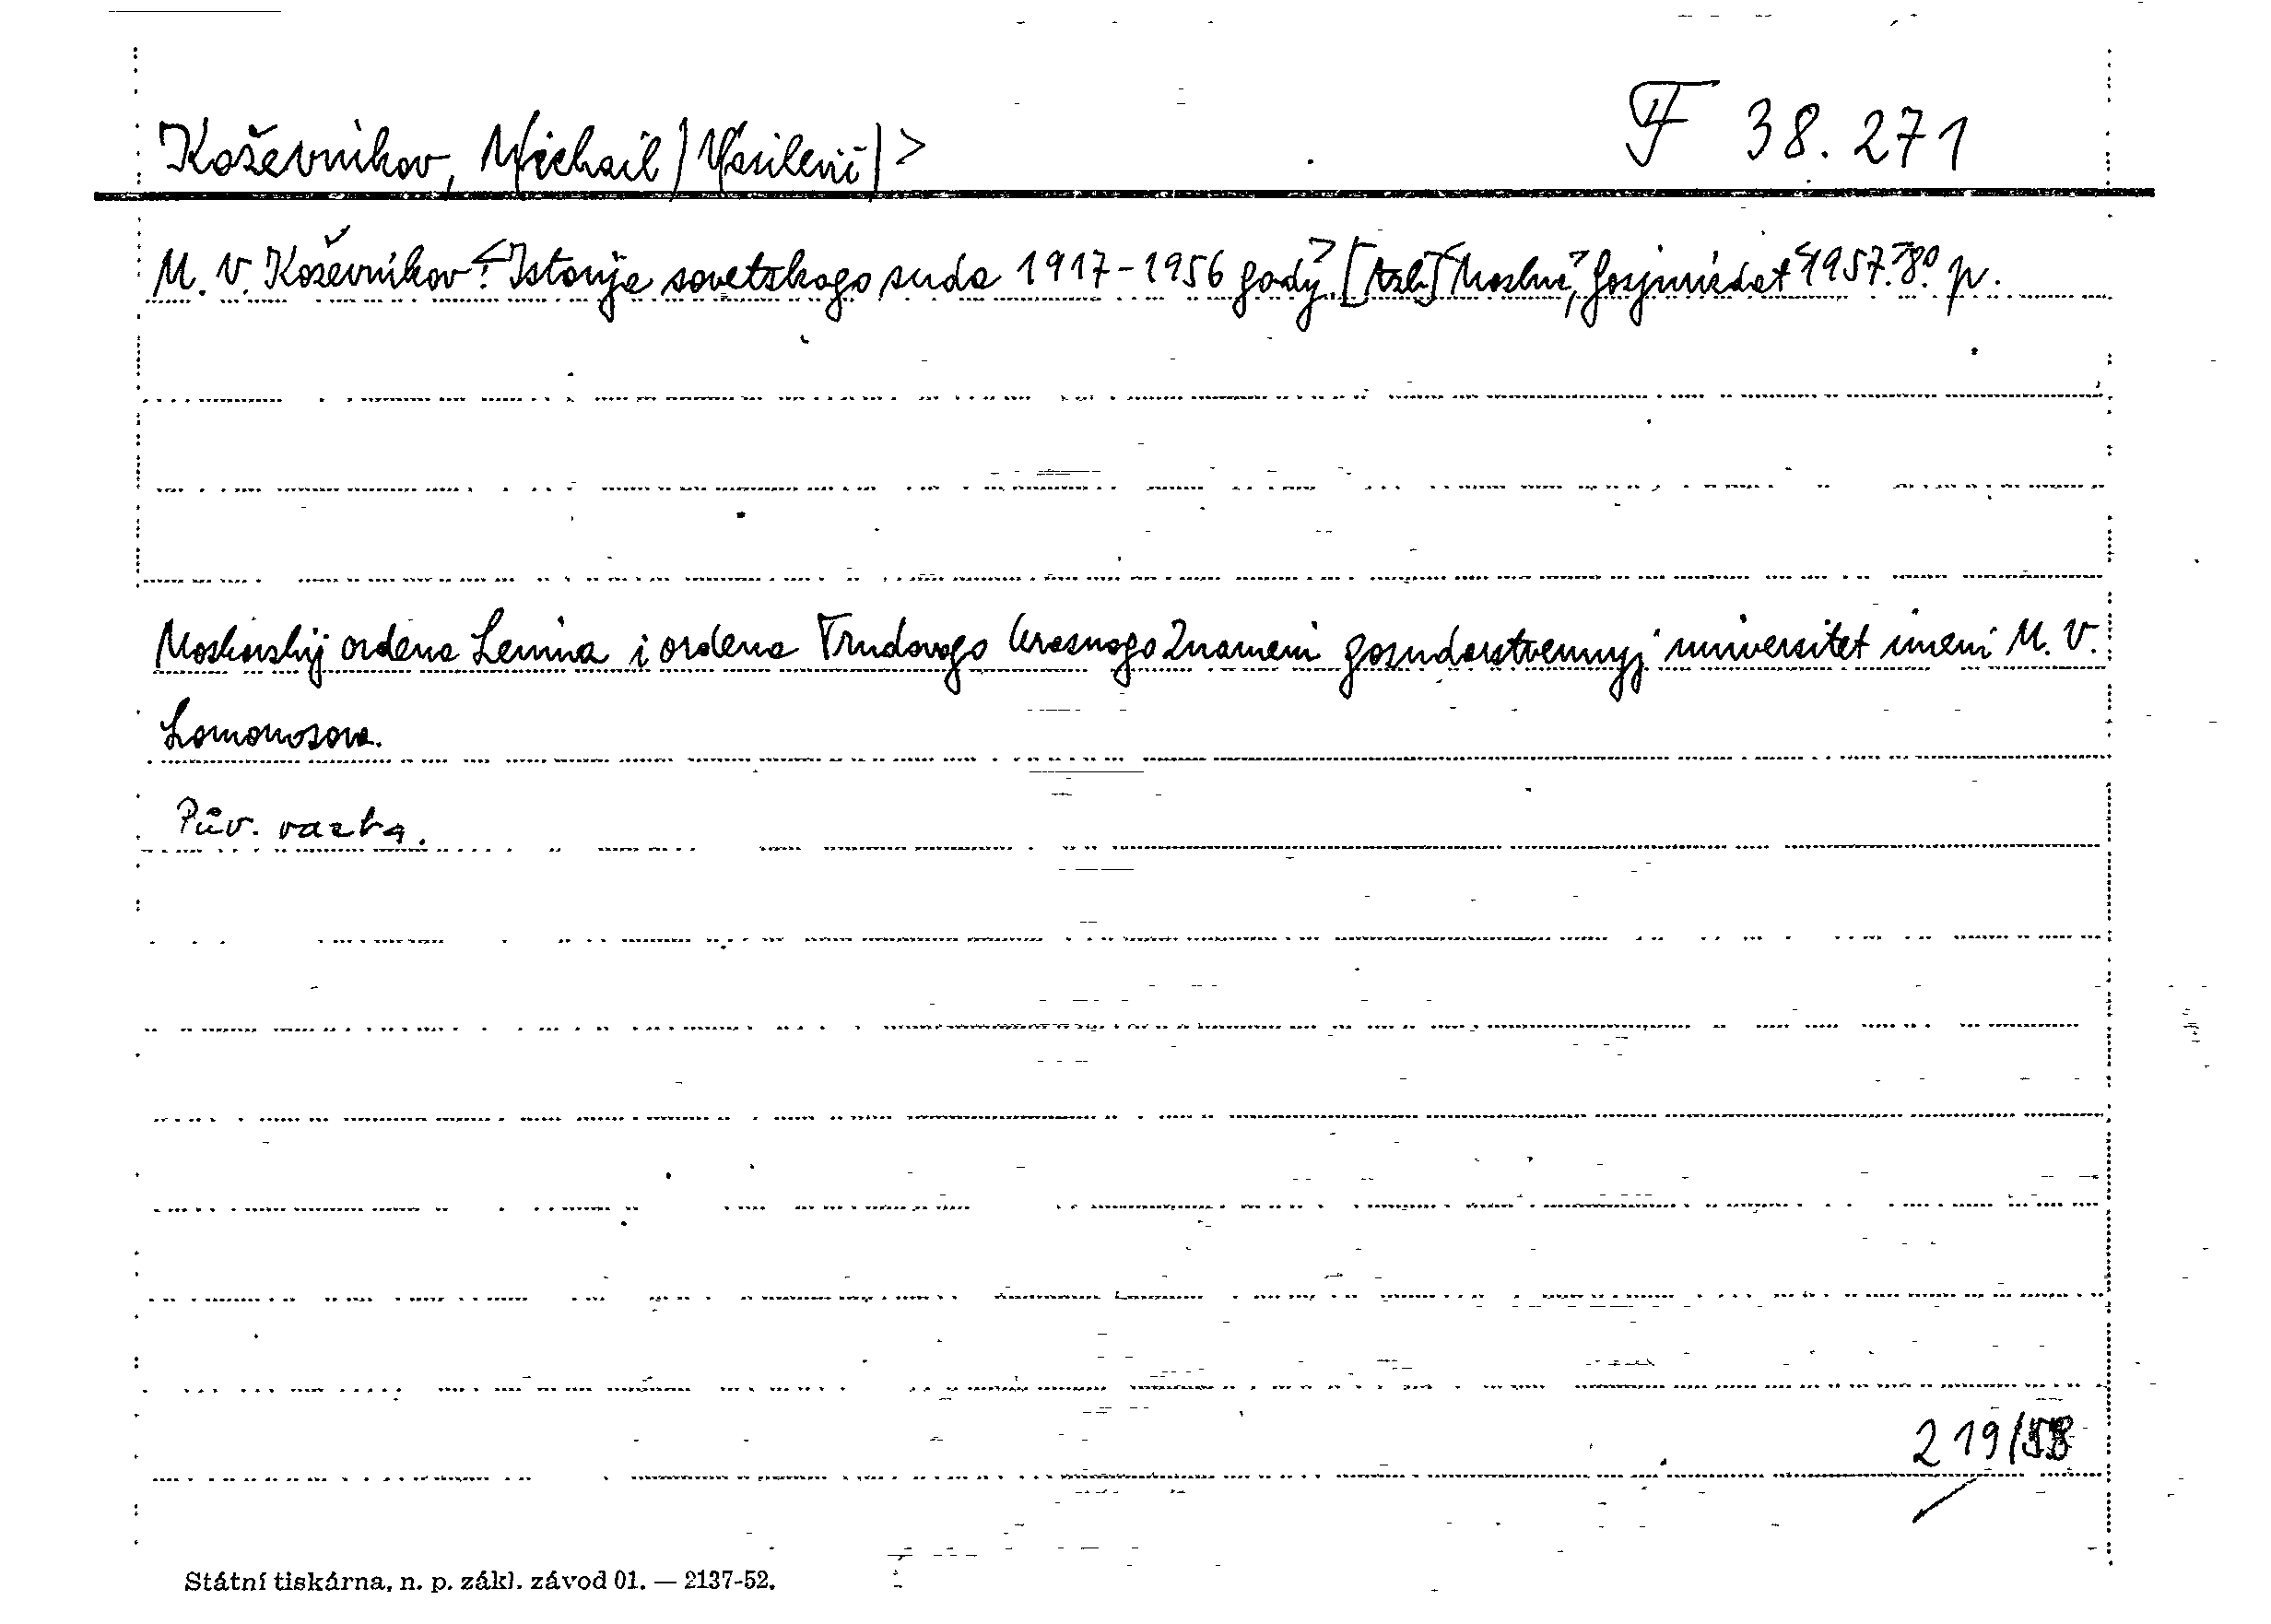 Koževnikov, Michail /Vasilevič/> F 38.271
M. V. Koževnikov: <Istorija sovetskogo suda 1917-1956 gody.> [Azb.] <Moskva,> Gosjurizdat <1957.> 8° p.
Moskovskij ordena Lenina i ordena Trudovogo Krasnogo Znameni gosudarstvennyj universitet imeni M. V.
Lomonosova.
Pův. vazba.
219/58
Státní tiskárna, n. p. zákl. závod 01. — 2137-52.